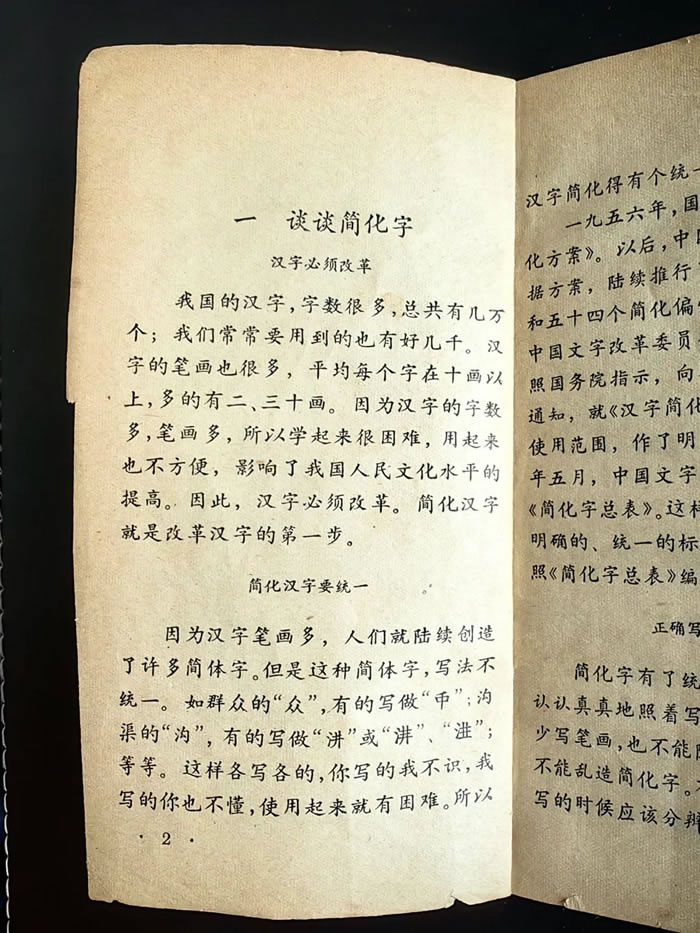 一 谈谈简化字
汉字必须改革
我国的汉字,字数很多,总共有几万
个；我们常常要用到的也有好几千。汉
字的笔画也很多，平均每个字在十画以
上,多的有二、三十画。因为汉字的字数
多,笔画多，所以学起来很困难，用起来
也不方便，影响了我国人民文化水平的
提高。因此，汉字必须改革。简化汉字
就是改革汉字的第一步。
简化汉字要统一
因为汉字笔画多，人们就陆续创造
了许多简体字。但是这种简体字,写法不
统一。如群众的“众”,有的写做“”；沟
渠的“沟”，有的写做“汫”或“”、“”；
等等。这样各写各的,你写的我不识，我
写的你也不懂,使用起来就有困难。所以
· 2 ·
汉字简化得有个统一
一九五六年，国
化方案》。以后，中国
据方案，陆续推行
和五十四个简化偏
中国文字改革委员
照国务院指示，向
通知，就《汉字简化
使用范围，作了明
年五月，中国文字
《简化字总表》。这样
明确的、统一的标
照《简化字总表》编
正确写
简化字有了统
认认真真地照着写
少写笔画,也不能
不能乱造简化字。
写的时候应该分辨